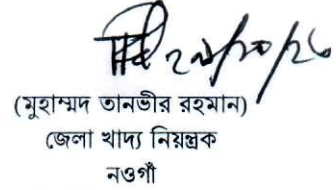 ২৯/১০/২৫
(মুহাম্মদ তানভীর রহমান)
জেলা খাদ্য নিয়ন্ত্রক
নওগাঁ